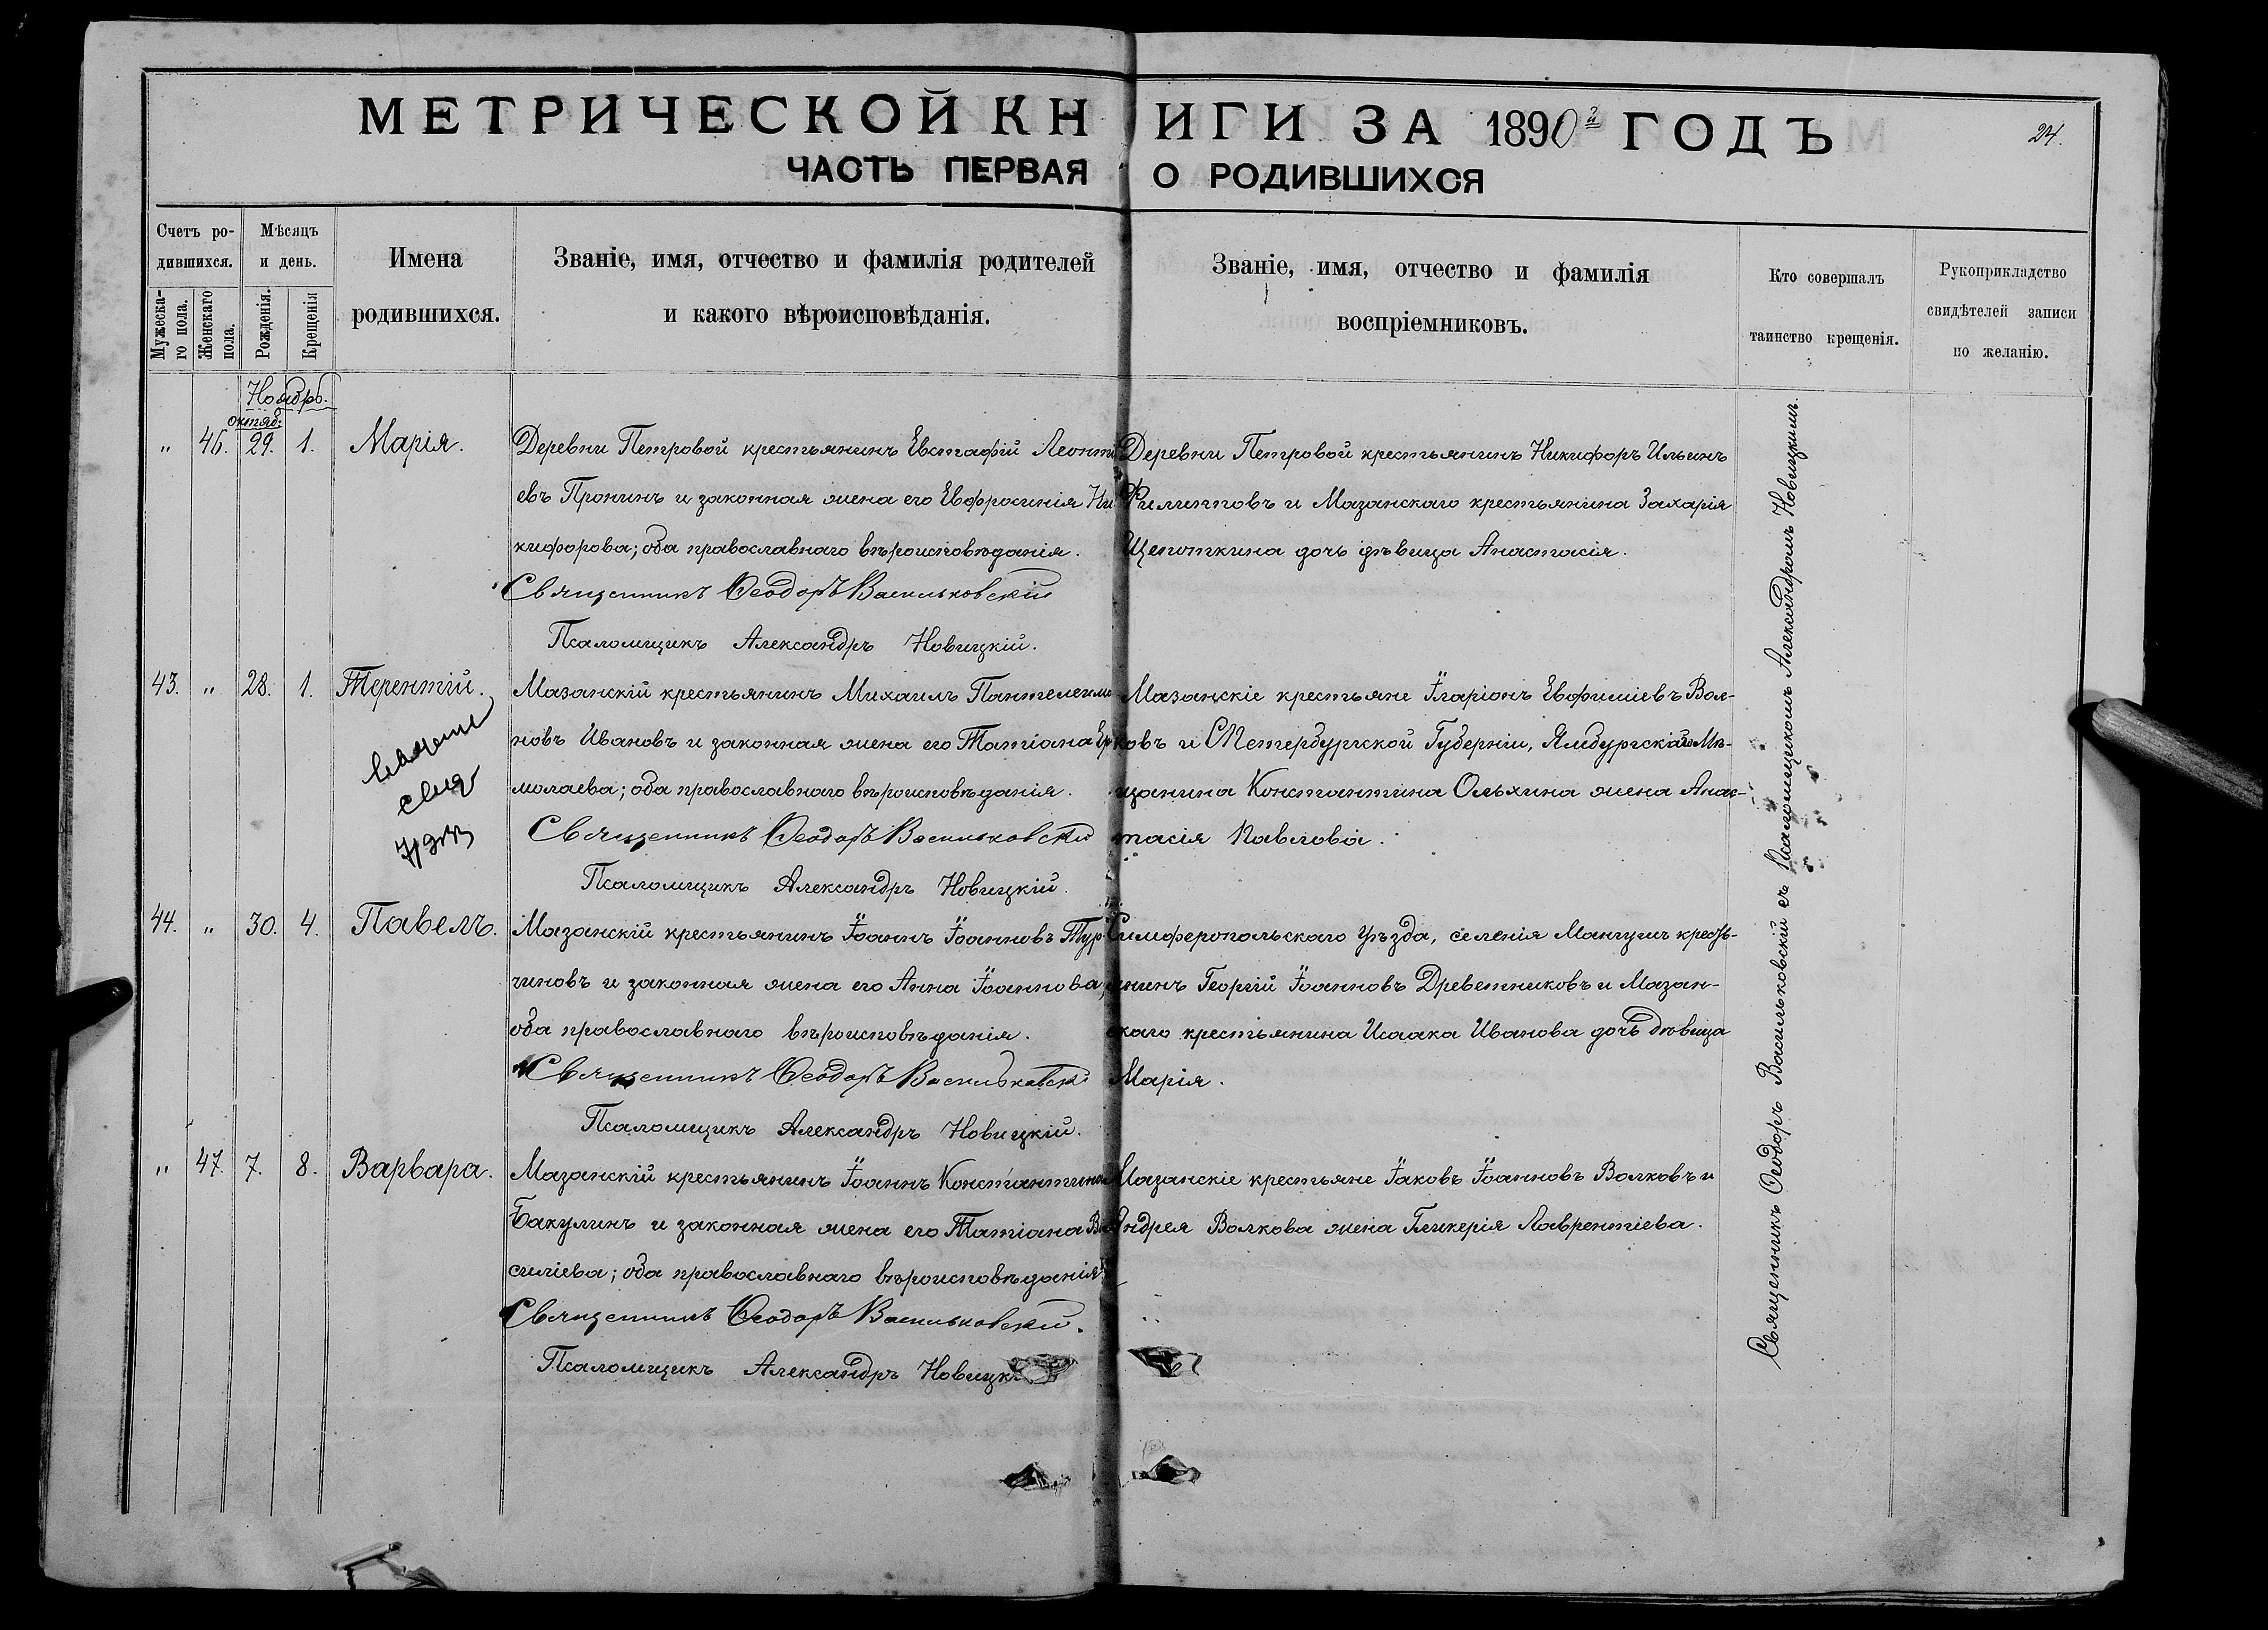 МЕТРИЧЕСКОЙ КНИГИ ЗА 1890й ГОДЪ
24.
ЧАСТЬ ПЕРВАЯ О РОДИВШИХСЯ
Счетъ ро-
дившихся.
Мужеска-
го пола.
Женскаго
пола.
Мѣсяцъ
и день.
Рожденія.
Крещенія
Имена
родившихся.
Званіе, имя, отчество и фамилія родителей
и какого вѣроисповѣданія.
Званіе, имя, отчество и фамилія
воспріемниковъ.
Кто совершалъ
таинство крещенія.
Рукоприкладство
свидѣтелей записи
по желанію.
Ноябрь.
октяб:
" 46. 29. 1. Марія.
Деревни Петровой крестьянинъ Евстафій Леонті
евъ Пронинъ и законная жена его Евфросинія Ни
кифорова; оба православнаго вѣроисповѣданія.
Священникъ Ѳеодоръ Васильковскій
Псаломщикъ Александръ Новицкій.
Деревни Петровой крестьянинъ Никифоръ Ильинъ
Филипповъ и Мазанскаго крестьянина Захарія
Щепоткина дочь дѣвица Анастасія.
43. " 28. 1. Терентій.
Мазанскій крестьянинъ Михаилъ Пантелеимо
новъ Ивановъ и законная жена его Татіана Ер
молаева; оба православнаго вѣроисповѣданія.
Священникъ Ѳеодоръ Васильковскій
Псаломщикъ Александръ Новицкій.
Мазанскіе крестьяне Іларіонъ Евфиміевъ Вол-
ковъ и СПетербургской Губерніи, Ямбургскаго Мѣ-
щанина Константина Ольхина жена Анас-
тасія Павлова.
44. " 30. 4. Павелъ.
Мазанскій крестьянинъ Іоаннъ Іоанновъ Тур
чиновъ и законная жена его Анна Іоаннова,
оба православнаго вѣроисповѣданія.
Священникъ Ѳеодоръ Васильковскі
Псаломщикъ Александръ Новицкій.
Симферопольскаго Уѣзда, селенія Мангушъ кресть-
янинъ Георгій Іоанновъ Древетниковъ и Мазан-
скаго крестьянина Исаака Иванова дочь дѣвица
Марія.
" 47. 7. 8. Варвара.
Мазанскій крестьянинъ Іоаннъ Константиновъ
Бакулинъ и законная жена его Татіана Ва
силіева; оба православнаго вѣроисповѣданія
Священникъ Ѳеодоръ Васильковскій.
Псаломщикъ Александръ Новицкі
Мазанскіе крестьяне Іаковъ Іоанновъ Волковъ и
Андрея Волкова жена Гликерія Лаврентіева.
Священникъ Ѳеодоръ Васильковскій съ Псаломщикомъ Александромъ Новицкимъ.